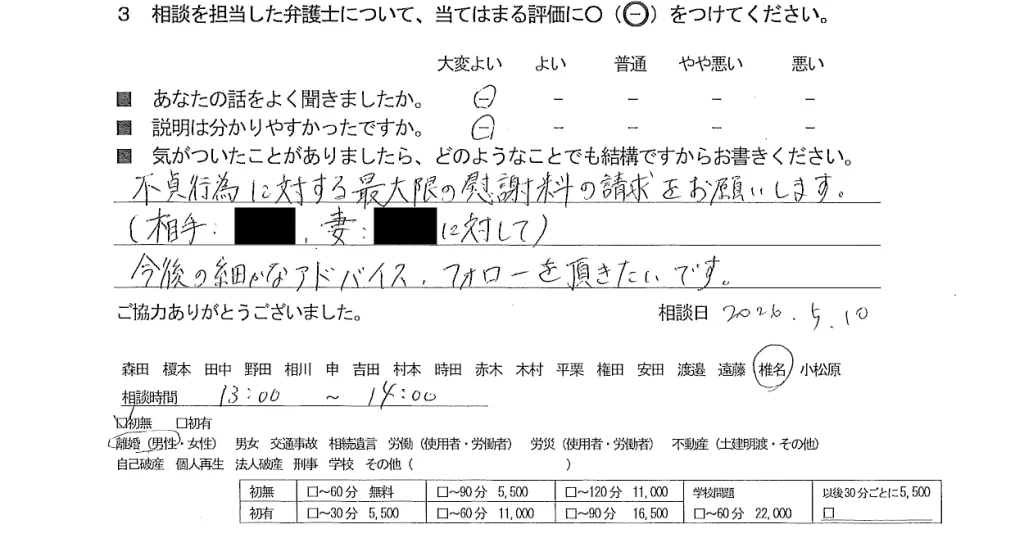 3 相談を担当した弁護士について、当てはまる評価に○（㊀）をつけてください。
大変よい よい 普通 やや悪い 悪い
■ あなたの話をよく聞きましたか。 ㊀ － － － －
■ 説明は分かりやすかったですか。 ㊀ － － － －
■ 気がついたことがありましたら、どのようなことでも結構ですからお書きください。
不貞行為に対する最大限の慰謝料の請求をお願いします。
(相手: , 妻: に対して)
今後の細かなアドバイス、フォローを頂きたいです。
ご協力ありがとうございました。 相談日 2026.5.10
森田 榎本 田中 野田 相川 申 吉田 村本 時田 赤木 木村 平栗 権田 安田 渡邉 遠藤 椎名 小松原
相談時間 13:00 ~ 14:00
☑初無 □初有
離婚（男性・女性） 男女 交通事故 相続遺言 労働（使用者・労働者） 労災（使用者・労働者） 不動産（土建明渡・その他）
自己破産 個人再生 法人破産 刑事 学校 その他（ ）
初無 □～60分 無料 □～90分 5,500 □～120分 11,000 学校問題 以後30分ごとに5,500
初有 □～30分 5,500 □～60分 11,000 □～90分 16,500 □～60分 22,000 □